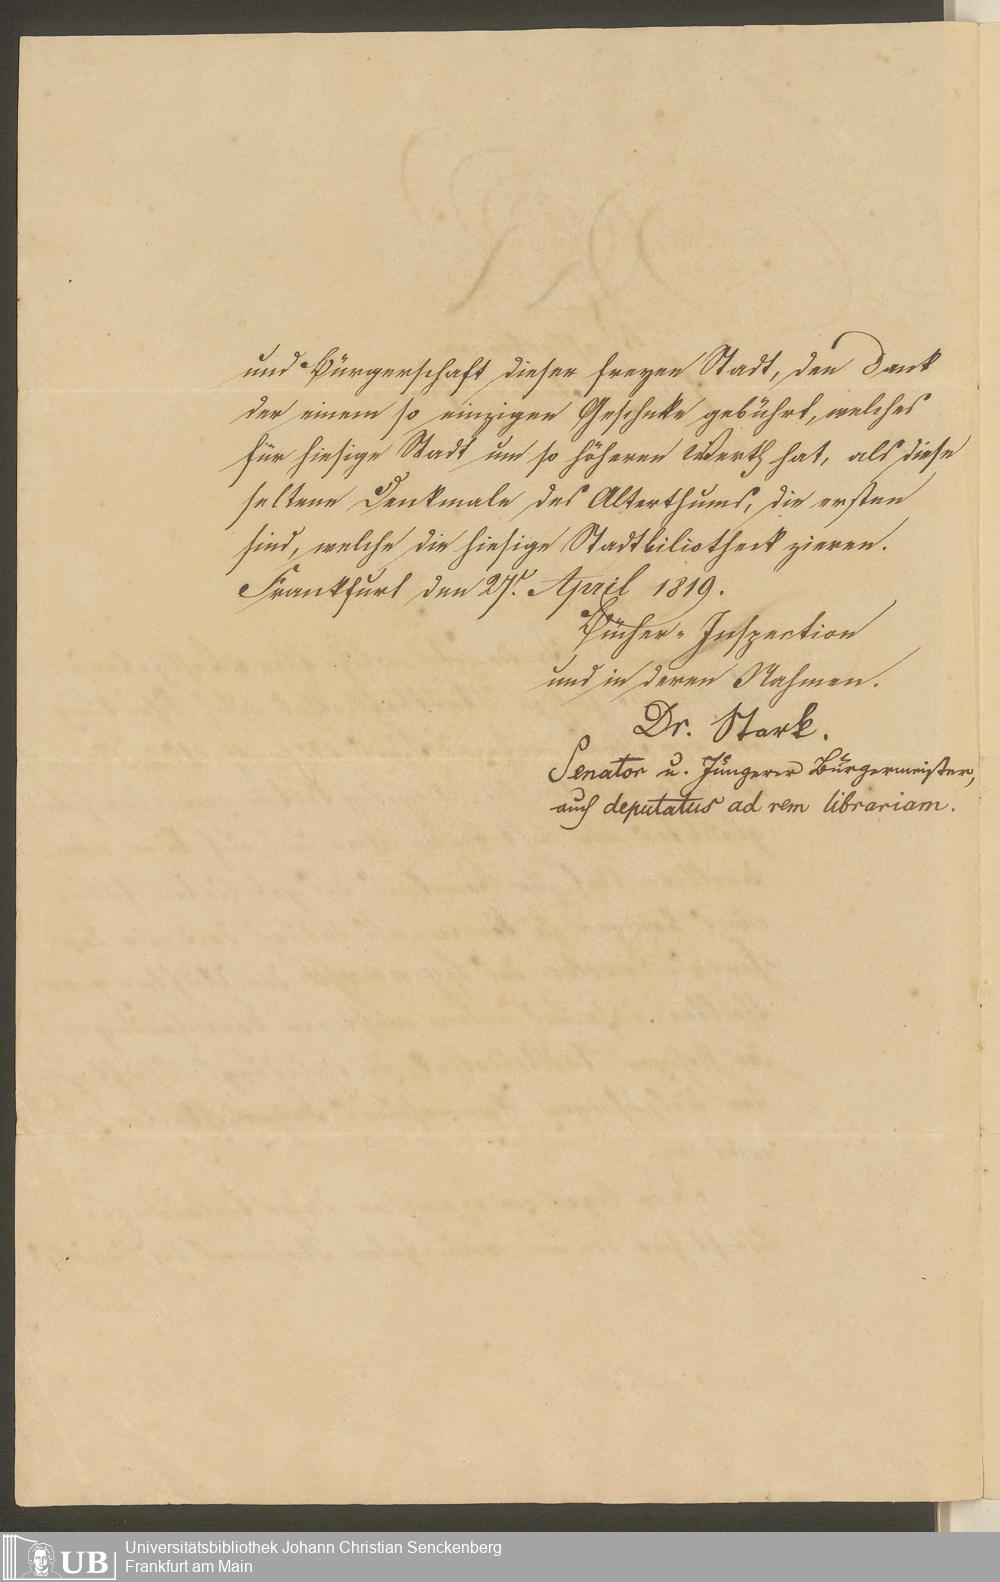 und Bürgerschaft dieser freyen Stadt, den Dank
der einem so einzigen Geschnke gebührt, welches
für hiesige Stadt um so höheren Werth hat, als diese
seltene Denkmale des Alterthums, die ersten
sind, welche die hiesige Stadtbiliotheck zieren.
Frankfurt den 27t. April 1819.
Bücher-Inspection
und in deren Nahmen.
Dr. Stark.
Senator u. Jüngerer Bürgermeister,
auch deputatus ad rem librariam.
UB Universitätsbibliothek Johann Christian Senckenberg
Frankfurt am Main